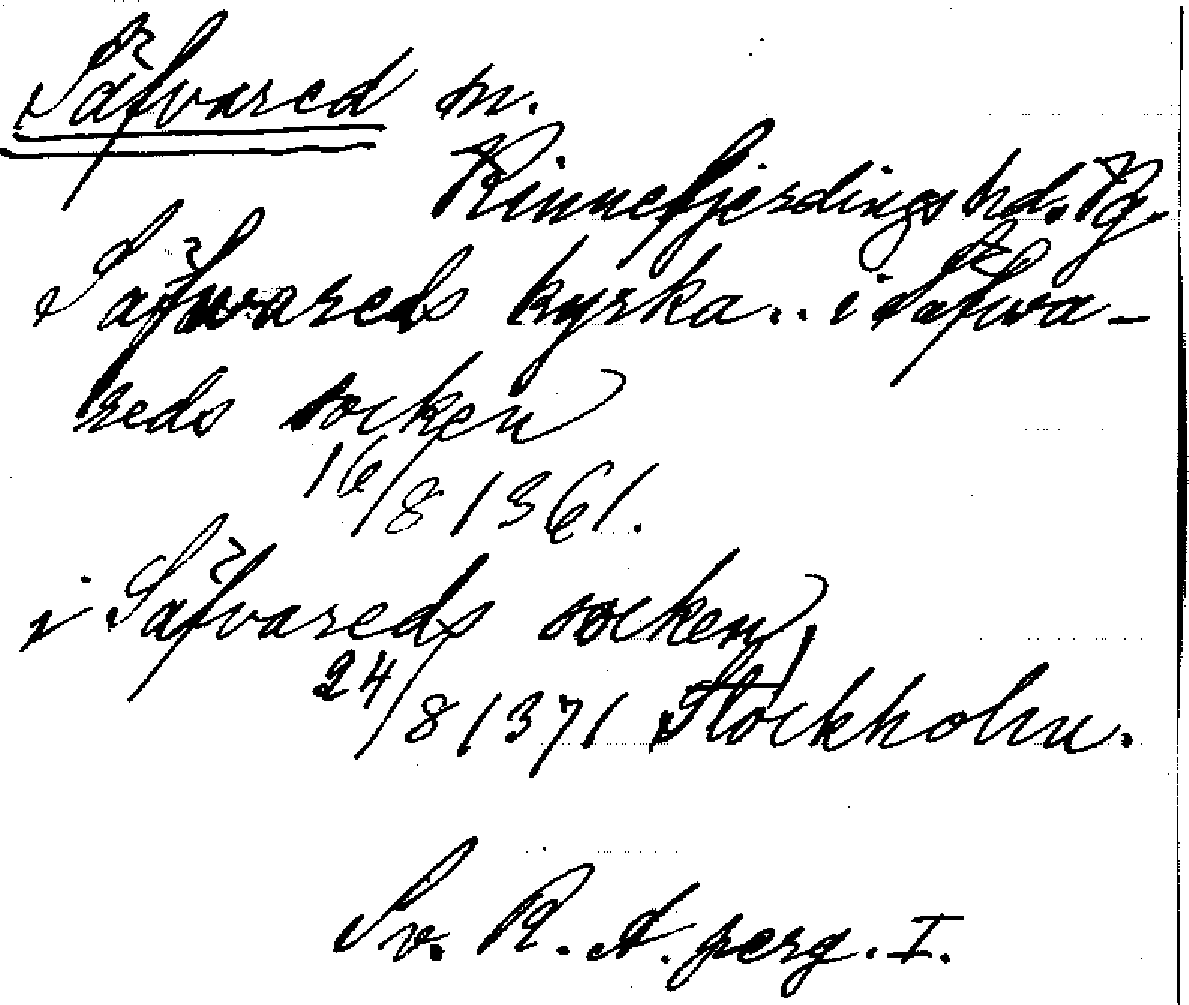 Säfvared sn.
Kinnefjerdings hd. Vg.
Säfvareds kyrka.. i Säfva-
reds socken
16/8 1361.
i Säfvareds socken,
24/8 1371 Stockholm.
Sv. R. A. perg. I.